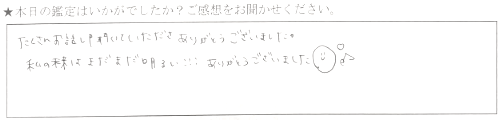 ★本日の鑑定はいかがでしたか？ご感想をお聞かせください。
たくさんお話し聞いていただき ありがとうございました。
私の未来はまだまだ明るい!!! ありがとうございました